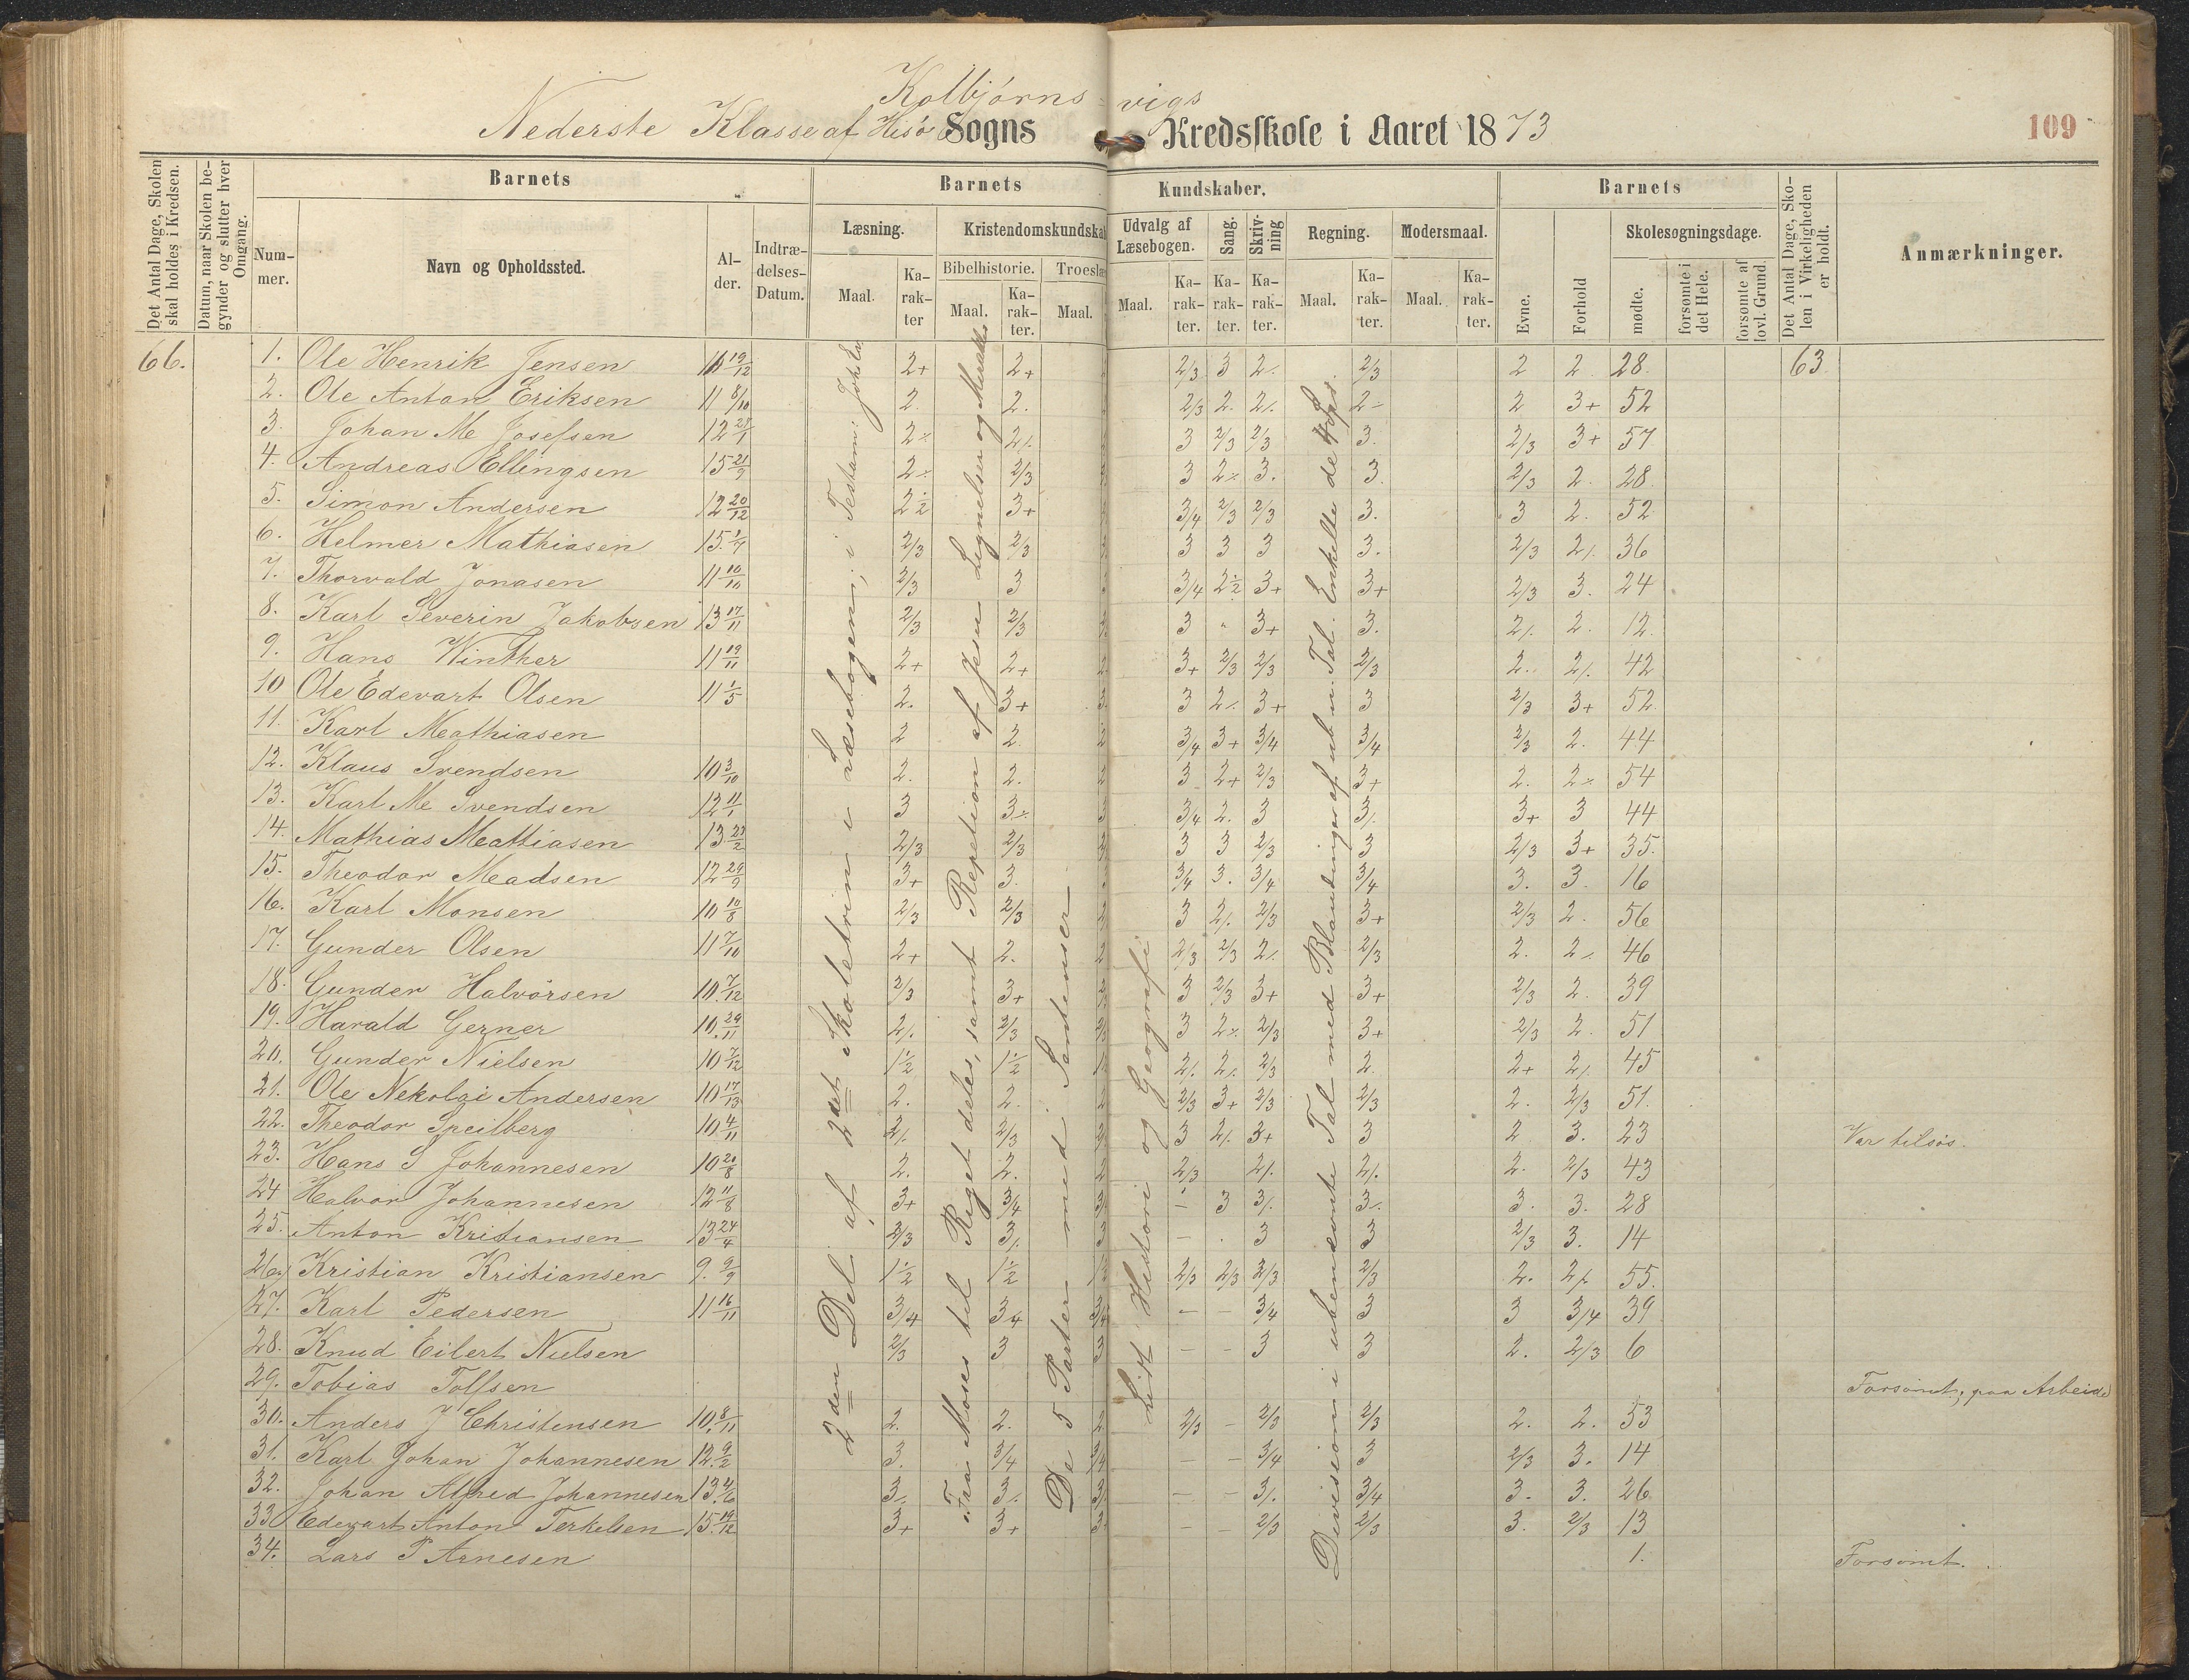 Kolbjørns=vigs
Nederste Klasse af Hisø Sogns Kredsskole i Aaret 1873
109
Det Antal Dage, Skolen skal holdes i Kredsen.
Datum, naar Skolen begynder og slutter hver Omgang.
Barnets
Barnets Kundskaber.
Barnets
Det Antal Dage, Skolen i Virkeligheden er holdt.
Anmærkninger.
Nummer.
Navn og Opholdssted.
Alder.
Indtrædelses-Datum.
Læsning.
Kristendomskundskab
Udvalg af Læsebogen.
Sang.
Skrivning
Regning.
Modersmaal.
Evne.
Forhold
Skolesøgningsdage.
Bibelhistorie.
Troeslæ
mødte.
forsømte i det Hele.
forsømte af lovl. Grund.
Maal. Karakter Maal. Karakter. Maal. Maal. Karakter. Karakter. Karakter. Maal. Karakter. Maal. Karakter.
66. 1. Ole Henrik Jensen 10 19/12 2+ 2+ 2/3 3 2/. 2/3 2 2. 28. 63.
2. Ole Anton Eriksen 11 8/10 2. 2. 2/3 2. 2/. 2÷ 2 3+ 52
3. Johan M Josefsen 12 28/1 2÷ 2/. 3 2/3 2/3 3. 2/3 3+ 57
4. Andreas Ellingsen 15 21/9 2÷ 2/3 3 2÷ 3. 3. 2/3 2. 28.
5. Simon Andersen 12 20/12 2½ 3+ 3/4 2/3 2/3 3. 3 2. 52
6. Helmer Mathiasen 15. 1/7 2/3 2/3 3 3 3 3. 2/3 2/. 36
7. Thorvald Jonasen 11 10/10 2/3 3 3/4 2½ 3+ 3+ 2/3 3. 24
8. Karl Severin Jakobsen 13 17/11 2/3 2/3 3 " 3+ 3. 2/. 2. 12.
9. Hans Winther 11 19/11 2+ 2+ 3+ 2/3 2/3 2/3 2. 2/. 42
10 Ole Edevart Olsen 11 1/5 2. 3+ 3. 3 2/. 3+ 3 2/3 3+ 52
11. Karl Mathiasen 2 2. 2 3/4 3+ 3/4 3/4 2/3 2. 44
12. Klaus Svendsen 10 3/10 2. 2. 2 3 2+ 2/3 3+ 2. 2÷ 54
13. Karl M Svendsen 12 11/1 3 3÷ 3 3/4 2. 3 3/. 3+ 3 44
14. Mathias Mattiasen 13 23/2 2/3 2/3 3 3 3 2/3 3 2/3 3+ 35.
15. Theodor Madsen 12 29/9 3+ 3. 3/4 3. 3/4 3/4 3. 3. 16
16. Karl Monsen 10 10/8 2/3 2/3 3 2/. 2/3 3+ 2/3 2. 56
17. Gunder Olsen 11 7/10 2+ 2. 2 2/3 2/3 2/. 2/3 2. 2÷ 46
18. Gunder Halvorsen 10. 7/12 2/3 3+ 3 2/3 3+ 3+ 2/3 2. 39
19. Harald Gerner 10. 29/11 2/. 2/3 3 2÷ 2/3 3+ 2/3 2. 51
20. Gunder Nielsen 10 7/12 1½ 1½ 2/. 2/. 2/3 2. 2+ 2/. 45
21. Ole Nekolai Andersen 10 17/13 2. 2. 2 2/3 3+ 2/3 2/3 2. 2/3 51.
22. Theodor Speilberg 10. 4/11 2/. 2/3 3 2/. 3+ 3 2 3. 23 Var tilsøs.
23. Hans S Johannesen 10 20/8 2. 2. 2 2/3 2/. 2/. 2. 2/3 43
24 Halvor Johannesen 12 11/8 3+ 3/4 - 3 3/. 3÷ 3. 3. 28
25. Anton Kristiansen 13 24/4 2/3 3/. 3 - . 3 3 2/3 3. 14
26 Kristian Kristiansen 9. 9/9 1½ 1½ 2/3 2/3 2/3 2/3 2. 2/. 55.
27. Karl Pedersen 11 16/11 3/4 3/4 3/4 - - 3/4 3 3 3/4 39
28. Knud Eilert Nielsen 2/3 3 3 - - 3 3 2. 2/3 6
29. Tobias Tollsen Forsømt, paa Arbeide
30. Anders J Christensen 10. 8/11 2. 2. 2 2/3 - 2/3 2/3 2. 2. 53
31. Karl Johan Johannesen 12. 9/2 3. 3/4 3/4 - - 3/4 3 2/3 3. 14
32. Johan Alfred Johannesen 13. 4/6 3/. 3/. 3/. - - 3/. 3/4 3. 3. 26
33 Edevart Anton Terkelsen 15. 19/12 3+ 3+ 3 - - 2/3 2/3 3. 2/3 13
34. Lars P Arnesen 1. Forsømt.
2den Del af 2det Skoletrin i Læsebogen; i Testam: Joh. Ev
Fra Moses til Riget deles, samt Repetition af Jesu Lignelser og Mirakler
De 5 Parter med Sentenser
Lidt Historie og Geografi
Devision i ubenævnte Tal med Blandinger af ub n. Tal. Enkelte de 4 Sps.